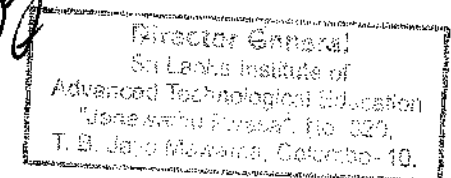 Director General
Sri Lanka Institute of
Advanced Technological Education
No. 320,
T. B. Jaya Mawatha, Colombo- 10.